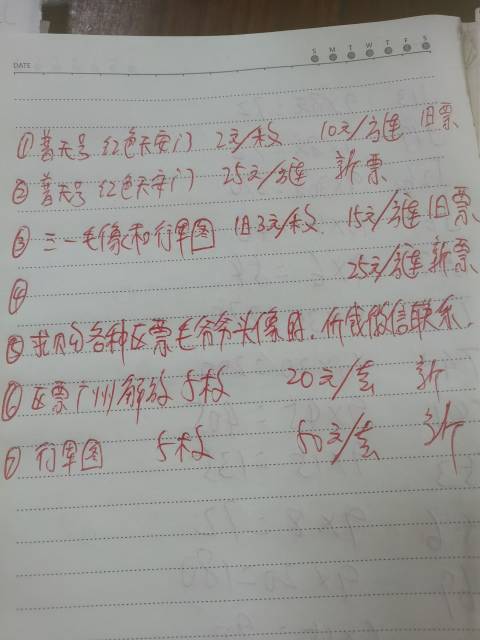 DATE
S M T W T F S
① 普无号 红色天安门 2元/枚 10元/方连 旧票
② 普无号 红色天安门 25元/方连 新票
③ 三一毛像和行军图 旧3元/枚 15元/方连 旧票
25元/方连 新票
④
⑤ 求购各种区票毛爷爷头像的,价或微信联系.
⑥ 区票广州解放 5枚 20元/套 新
⑦ 行军图 5枚 50元/套 新